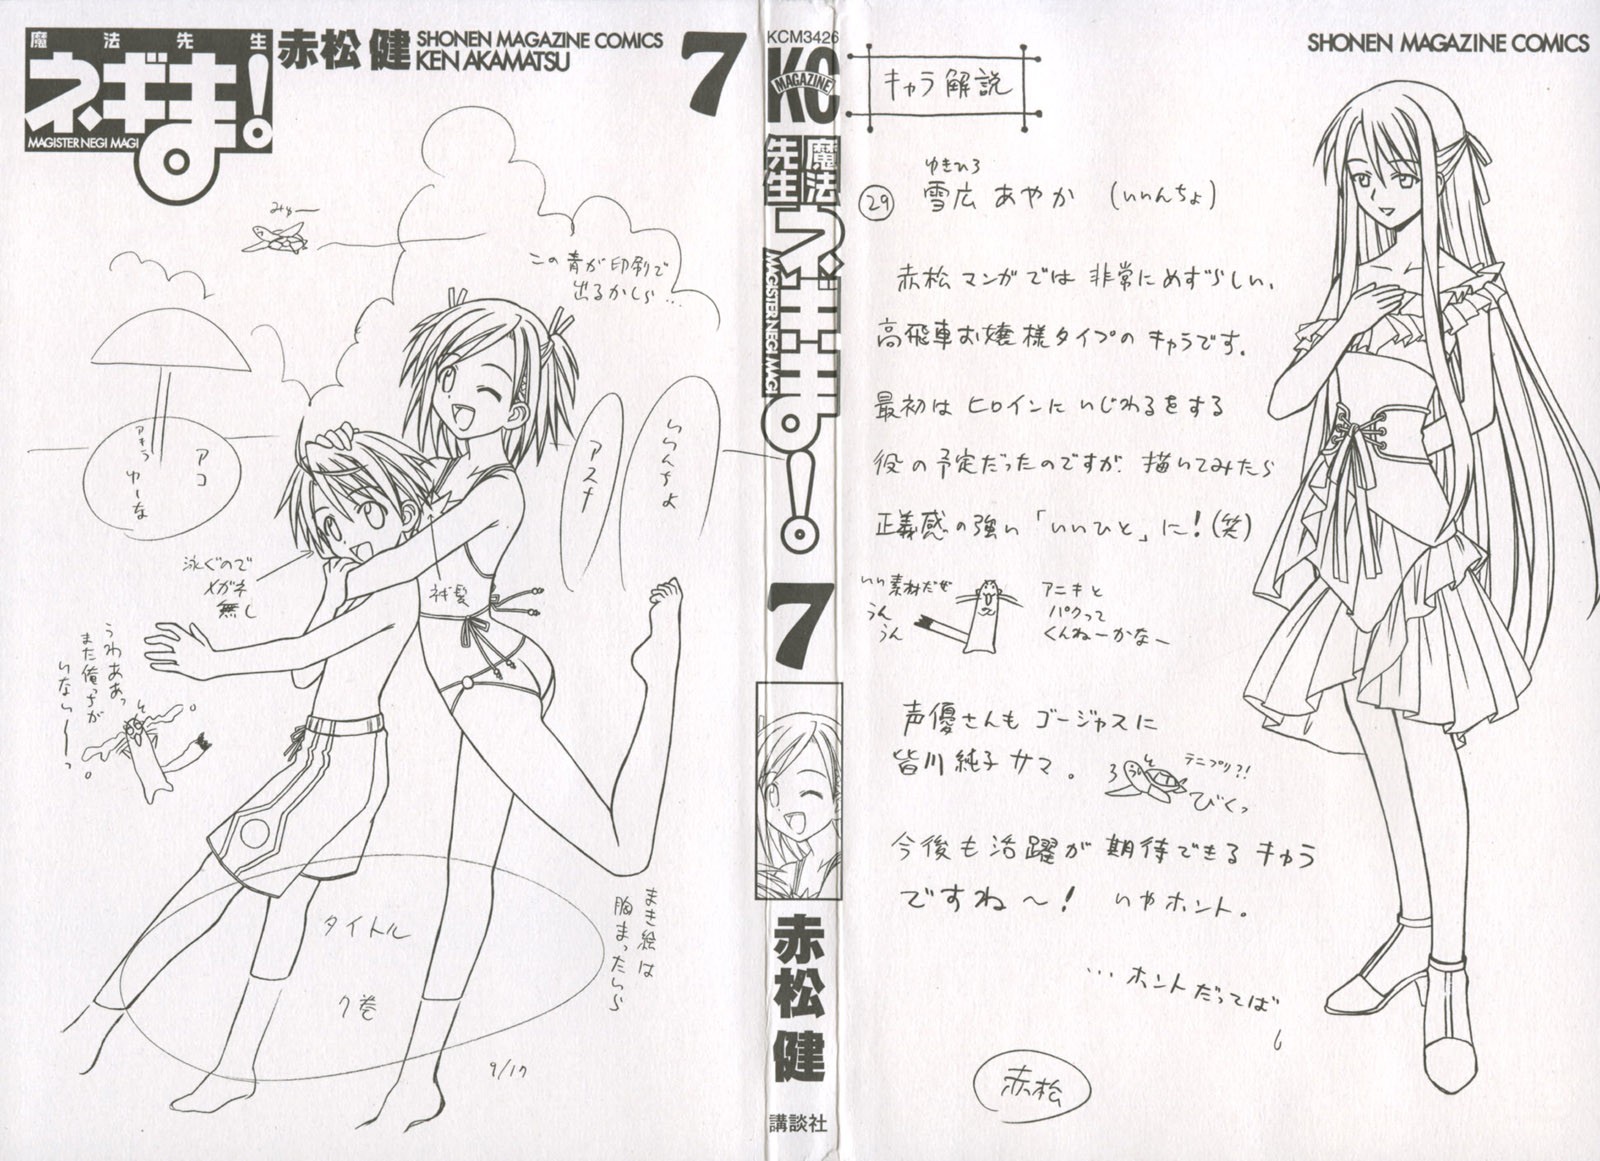 魔法先生
ネギま!
MAGISTER NEGI MAGI
赤松 健
SHONEN MAGAZINE COMICS
KEN AKAMATSU
7
みゅー
この青が印刷で
出るかしら…
アキラ
ゆーな
アコ
アスナ
いいんちょ
泳ぐので
メガネ
無し
うわああっ
また俺っちが
いない——っ
まき絵は
胸まったいら
タイトル
7巻
9/17
KCM3426
KC
MAGAZINE
魔法先生
ネギま!
MAGISTER NEGI MAGI
7
赤松 健
講談社
SHONEN MAGAZINE COMICS
キャラ解説
ゆきひろ
29 雪広 あやか (いいんちょ)
赤松マンガでは 非常にめずらしい、
高飛車お嬢様タイプの キャラです。
最初は ヒロインに いじわるをする
役の予定だったのですが、描いてみたら
正義感の強い「いいひと」に!(笑)
いい素材だぜ
うん
うん
アニキと
パクって
くんねーかなー
声優さんも ゴージャスに
皆川純子サマ。
テニプリ?!
びくっ
今後も活躍が 期待できる キャラ
ですね〜! いやホント。
…ホントだってば
赤松